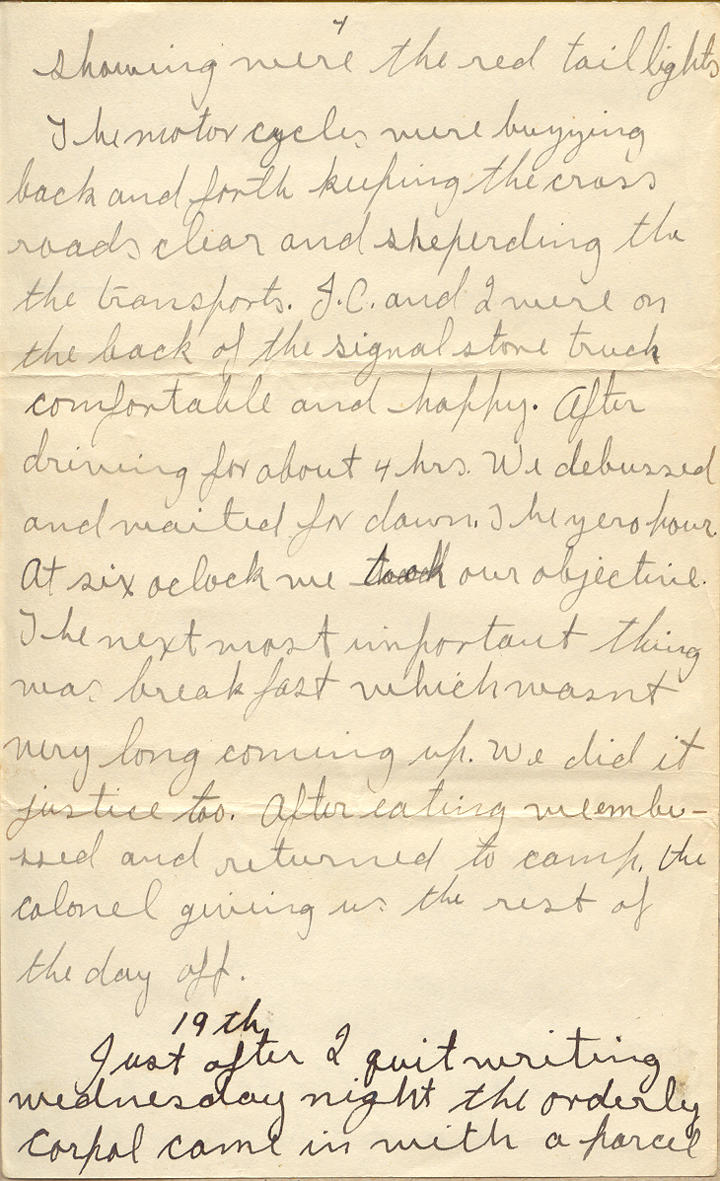 4
showing were the red tail lights
The motor cycles were buzzing
back and forth keeping the cross
roads clear and sheperding the
the transports. J.C. and I were on
the back of the signal store truck
comfortable and happy. After
driving for about 4 hrs. We debussed
and waited for dawn. The zero hour.
At six oclock we took our objective.
The next most important thing
was breakfast which wasnt
very long coming up. We did it
justice too. After eating we embu-
ssed and returned to camp, the
colonel giving us the rest of
the day off.
19th
Just after I quit writing
wednesday night the orderly
corpol came in with a parcel